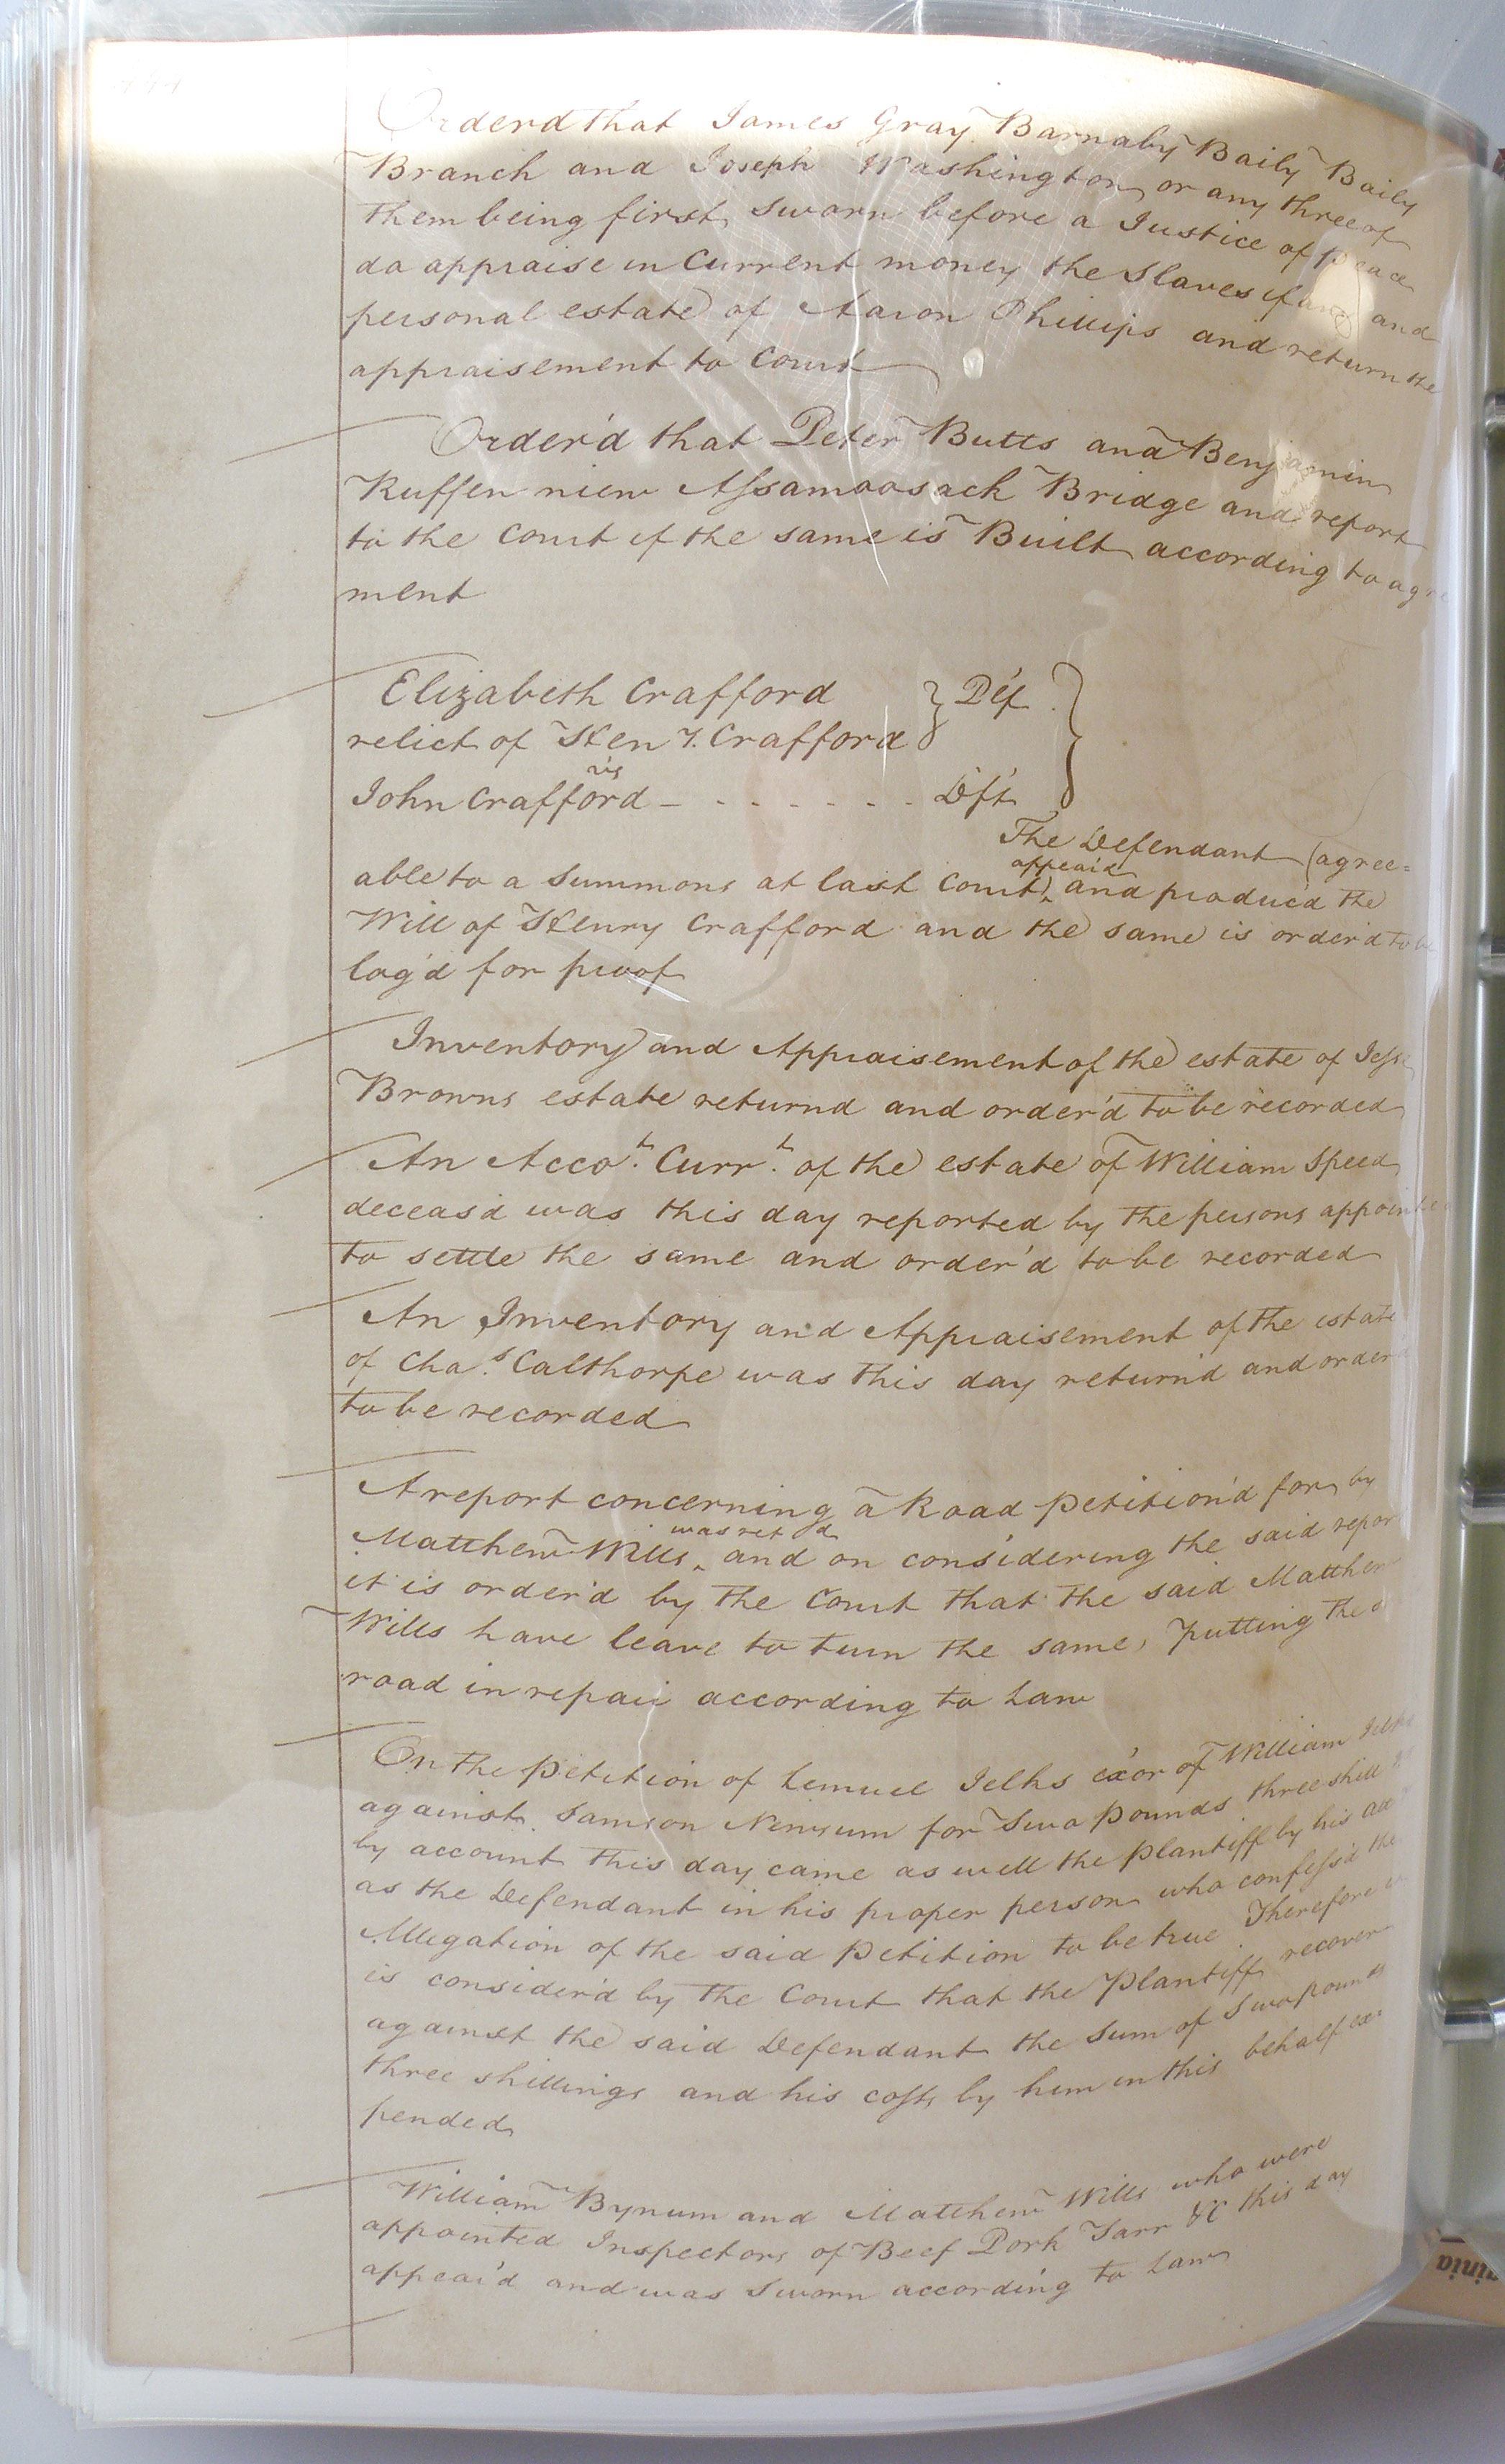 444
Orderd that James Gray Barnaby Baily Baily
Branch and Joseph Washington or any three of
them being first sworn before a Justice of Peace
do appraise in Current money the Slaves if any and
personal estate of Aaron Phillips and return the
appraisement to Court
Order'd that Peter Butts and Benjamin
Ruffen niew Assamoosack Bridge and report
to the Court if the same is Built according to agre
ment
Elizabeth Crafford } Plf
relict of Hen y. Crafford
vs
John Crafford - . . . . . . . Dft
The Defendant (agree=
able to a Summons at last Court) appear'd and produc'd the
Will of Henry Crafford and the same is order'd to be
log'd for proof
Inventory and Appraisement of the estate of Jesse
Browns estate returnd and order'd to be recorded
An Acco.t Curr.t of the estate of William Speed
deceas'd was this day reported by the persons appointed
to settle the same and order'd to be recorded
An Inventory and Appraisement of the estate
of Cha.s Calthorpe was this day return'd and order'd
to be recorded
A report concerning a Road petition'd for by
Matthew Wills was ret d and on considering the said repor
it is order'd by the Court that the said Matthew
Wills have leave to turn the same, putting the
road in repair according to Law
On the petition of Lemuel Jelks ex'or of William Jelks
against Samson Newsum for Two pounds three shill
by account this day came as well the plantiff by his
as the Defendant in his proper person who confess'd the
Allegation of the said petition to be true Therefore
is consider'd by the Court that the plantiff recover
against the said Defendant the Sum of Two pounds
three shillings and his costs by him in this behalf ex=
pended
William Bynum and Matthew Wills who were
appointed Inspectors of Beef Pork Tarr &c this day
appear'd and was Sworn according to Law
inia